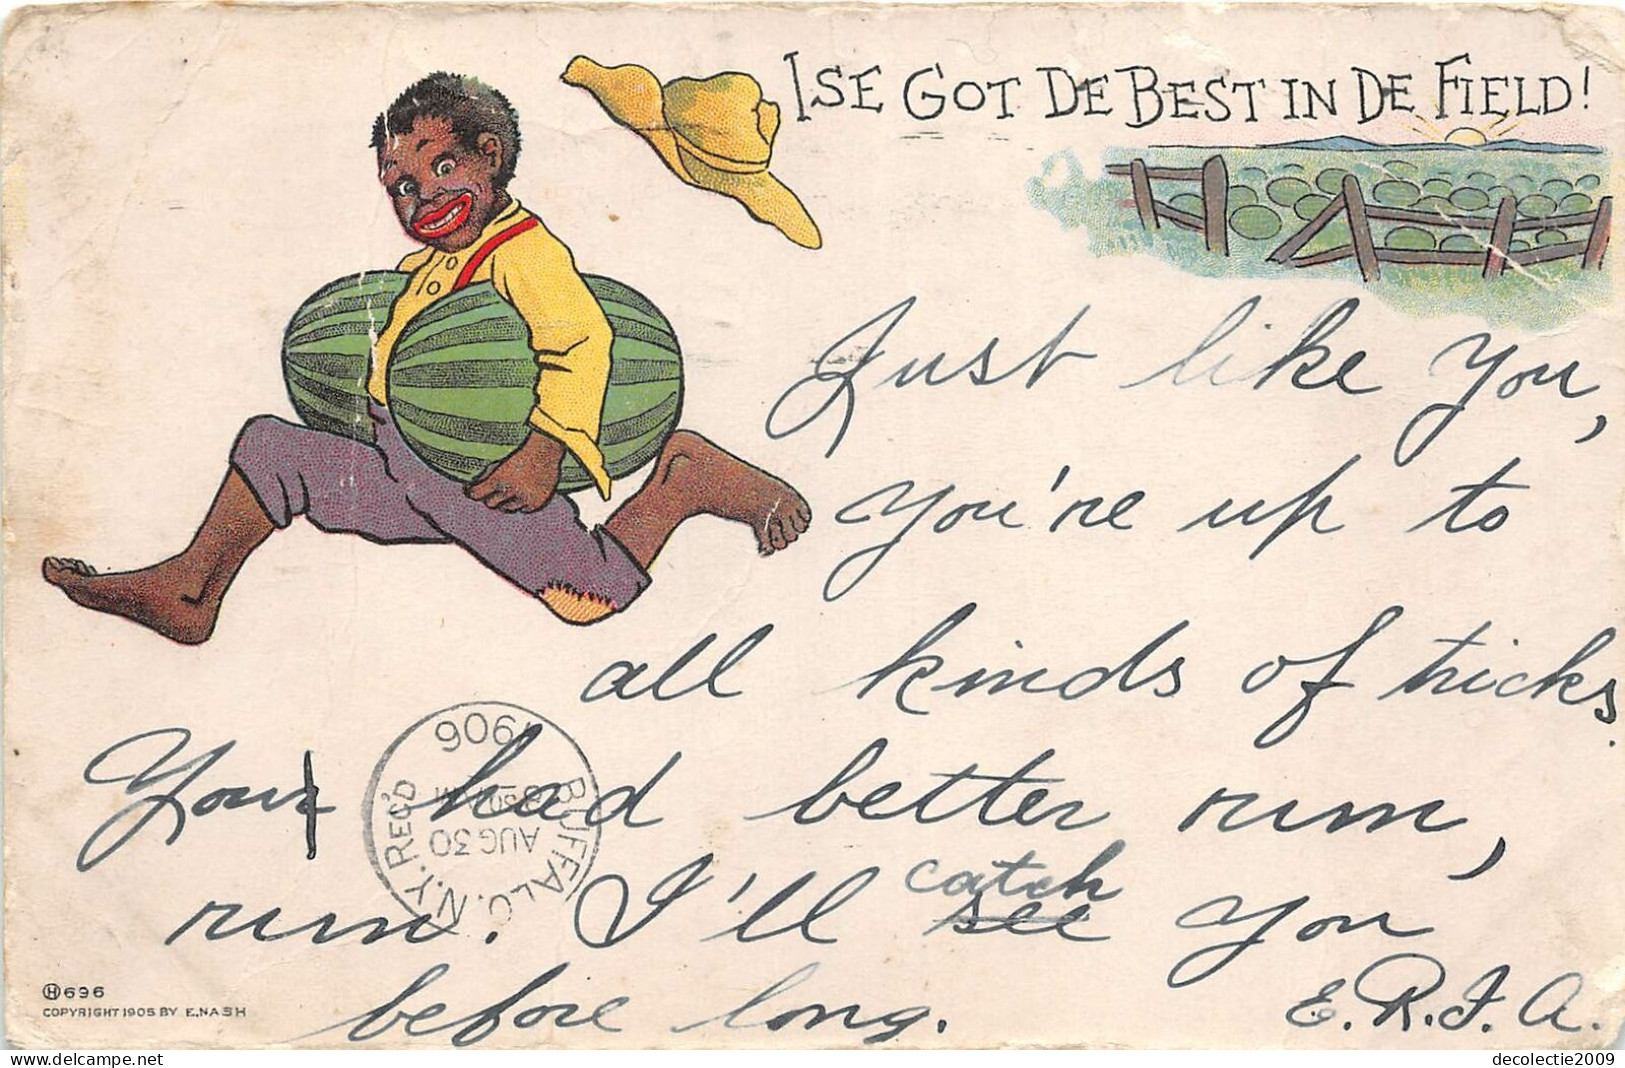 ISE GOT DE BEST IN DE FIELD!
Just like you,
you're up to
all kinds of tricks.
You had better run,
catch
run. I'll see you
before long. E.R.F.A.
1906
AUG 30
BUFFALO, N.Y. REC'D
H 696
COPYRIGHT 1905 BY E.NASH
decolectie2009